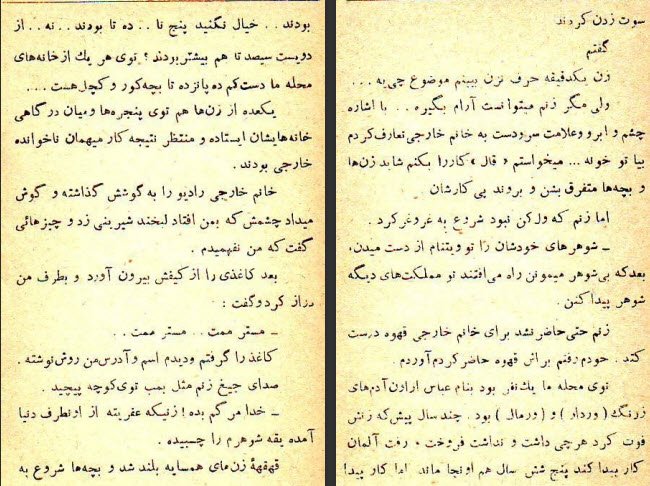 بودند.. خیال نکنید پنج تا.. ده تا بودند.. نه.. از
دویست سیصد تا هم بیشتر بودند؟ توی هر یك از خانه‌های
محله ما دست‌کم ده پانزده تا بچه کور و کچل هست...
یکعده از زن‌ها هم توی پنجره‌ها و میان درگاهی
خانه‌هایشان ایستاده و منتظر نتیجه کار میهمان ناخوانده
خارجی بودند.
خانم خارجی رادیو را به گوشش گذاشته و گوش
میداد چشمش که بمن افتاد لبخند شیرینی زد و چیزهائی
گفت که من نفهمیدم.
بعد کاغذی را از کیفش بیرون آورد و بطرف من
دراز کرد و گفت:
ـ مستر ممت.. مستر ممت..
کاغذ را گرفتم و دیدم اسم و آدرس من روش نوشته.
صدای جیغ زنم مثل بمب توی کوچه پیچید.
ـ خدا مرگم بده! زنیکه عفریته از اونطرف دنیا
آمده یقه شوهرم را چسبیده.
قهقههٔ زن‌های همسایه بلند شد و بچه‌ها شروع به
سوت زدن کردند
گفتم
زن یکدقیقه حرف نزن ببینم موضوع چی‌یه...
ولی مگر زنم میتوانست آرام بگیره.. با اشاره
چشم و ابرو و علامت سرودست به خانم خارجی تعارف کردم
بیا تو خونه... میخواستم «قال» کار را بکنم شاید زن‌ها
و بچه‌ها متفرق بشن و بروند پی کارشان
اما زنم که ول کن نبود شروع به غروغر کرد.
ـ شوهرهای خودشان را تو ویتنام از دست میدن،
بعدکه بی‌شوهر میمونن راه می‌افتند تو مملکت‌های دیگه
شوهر پیدا کنن.
زنم حتی حاضر نشد برای خانم خارجی قهوه درست
کند. خودم رفتم براش قهوه حاضر کردم آوردم.
توی محله ما یك نفر بود بنام عباس از اون آدم‌های
زرنگ (وردار) و (ورمال) بود. چند سال پیش که زنش
فوت کرد هرچی داشت و نداشت فروخت و رفت آلمان
کار پیدا کند پنج شش سال هم اونجا ماند اما کار پیدا